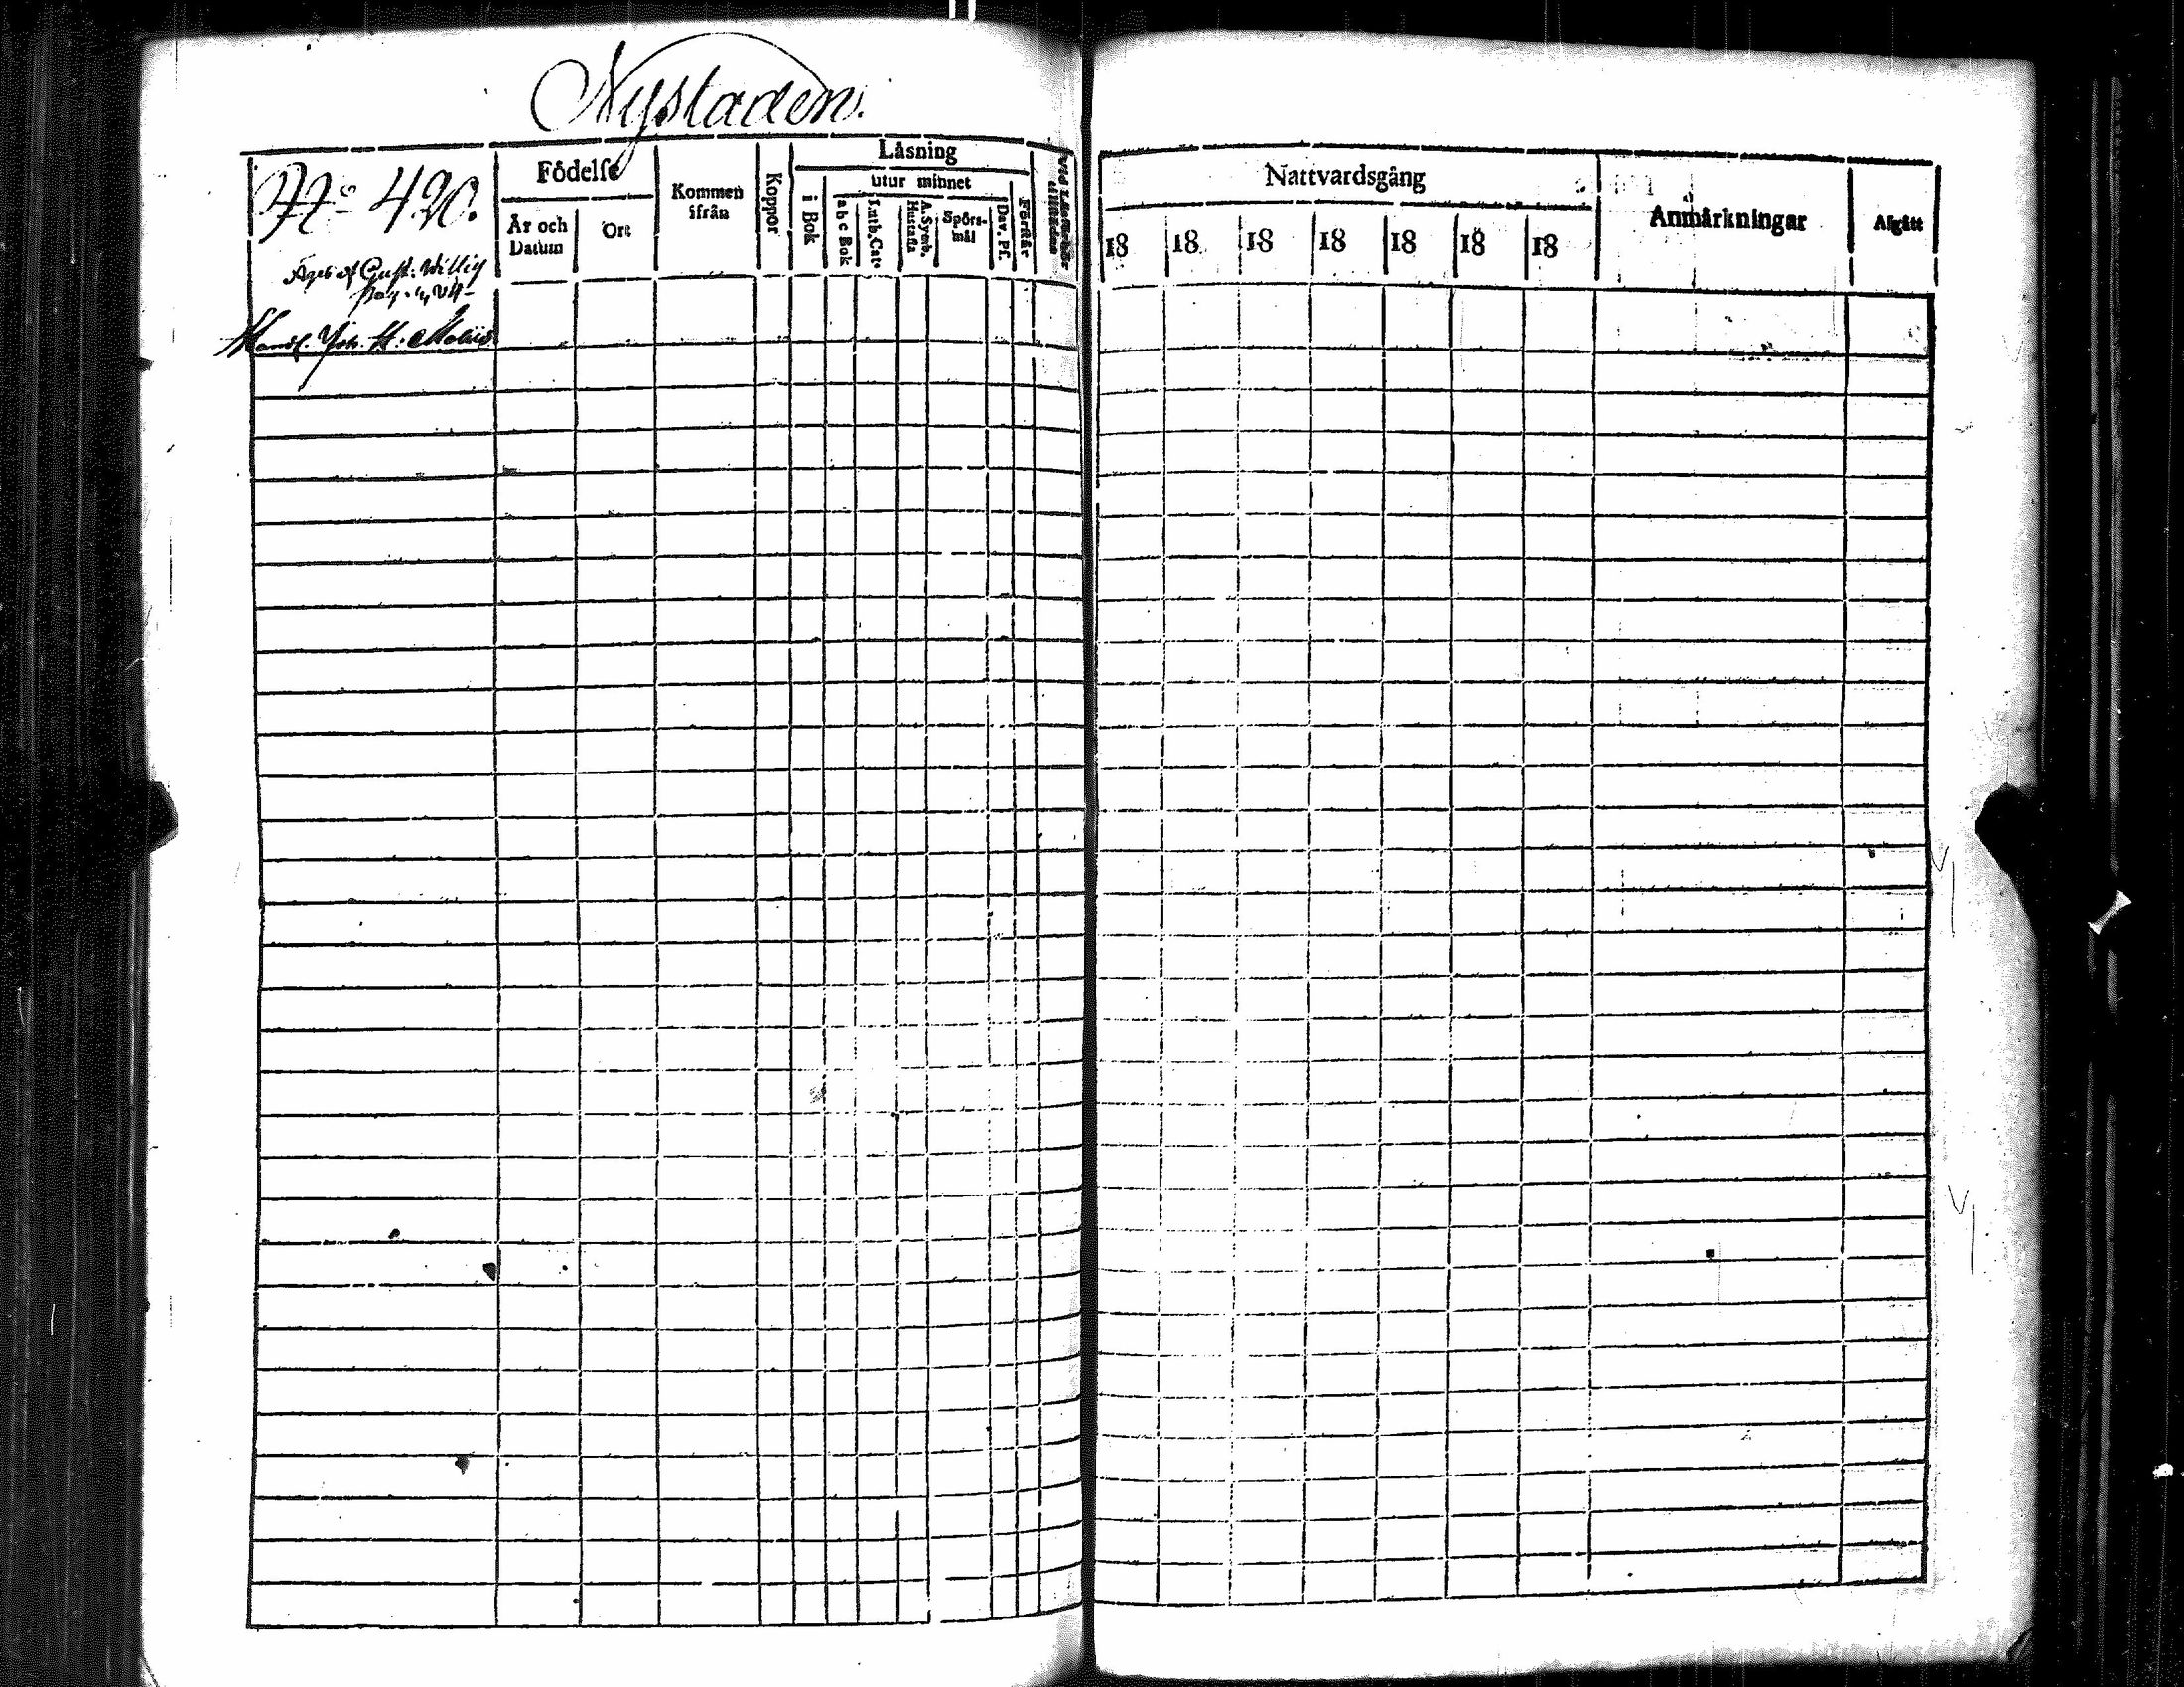 Nystaden.
No 420.
Äges af Gust. Willig
Handl. Joh. H.
Fôdelse
År och Datum
Ort
Kommen ifrån
Koppor
Låsning
i Bok
utur minnet
a b c Bok
Luth. Cat.
A. Symb. Hustafla
Spörs-mål
Dav. Ps.
Förstår
Nattvardsgång
18 18 18 18 18 18 18
Anmårkningar
Afgått